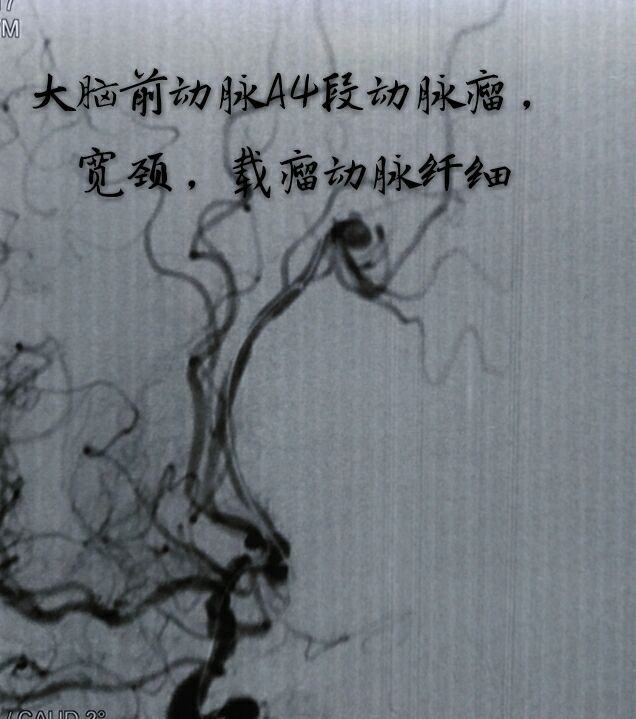 17
PM
大脑前动脉A4段动脉瘤，
宽颈，载瘤动脉纤细
/ CAUD 2°